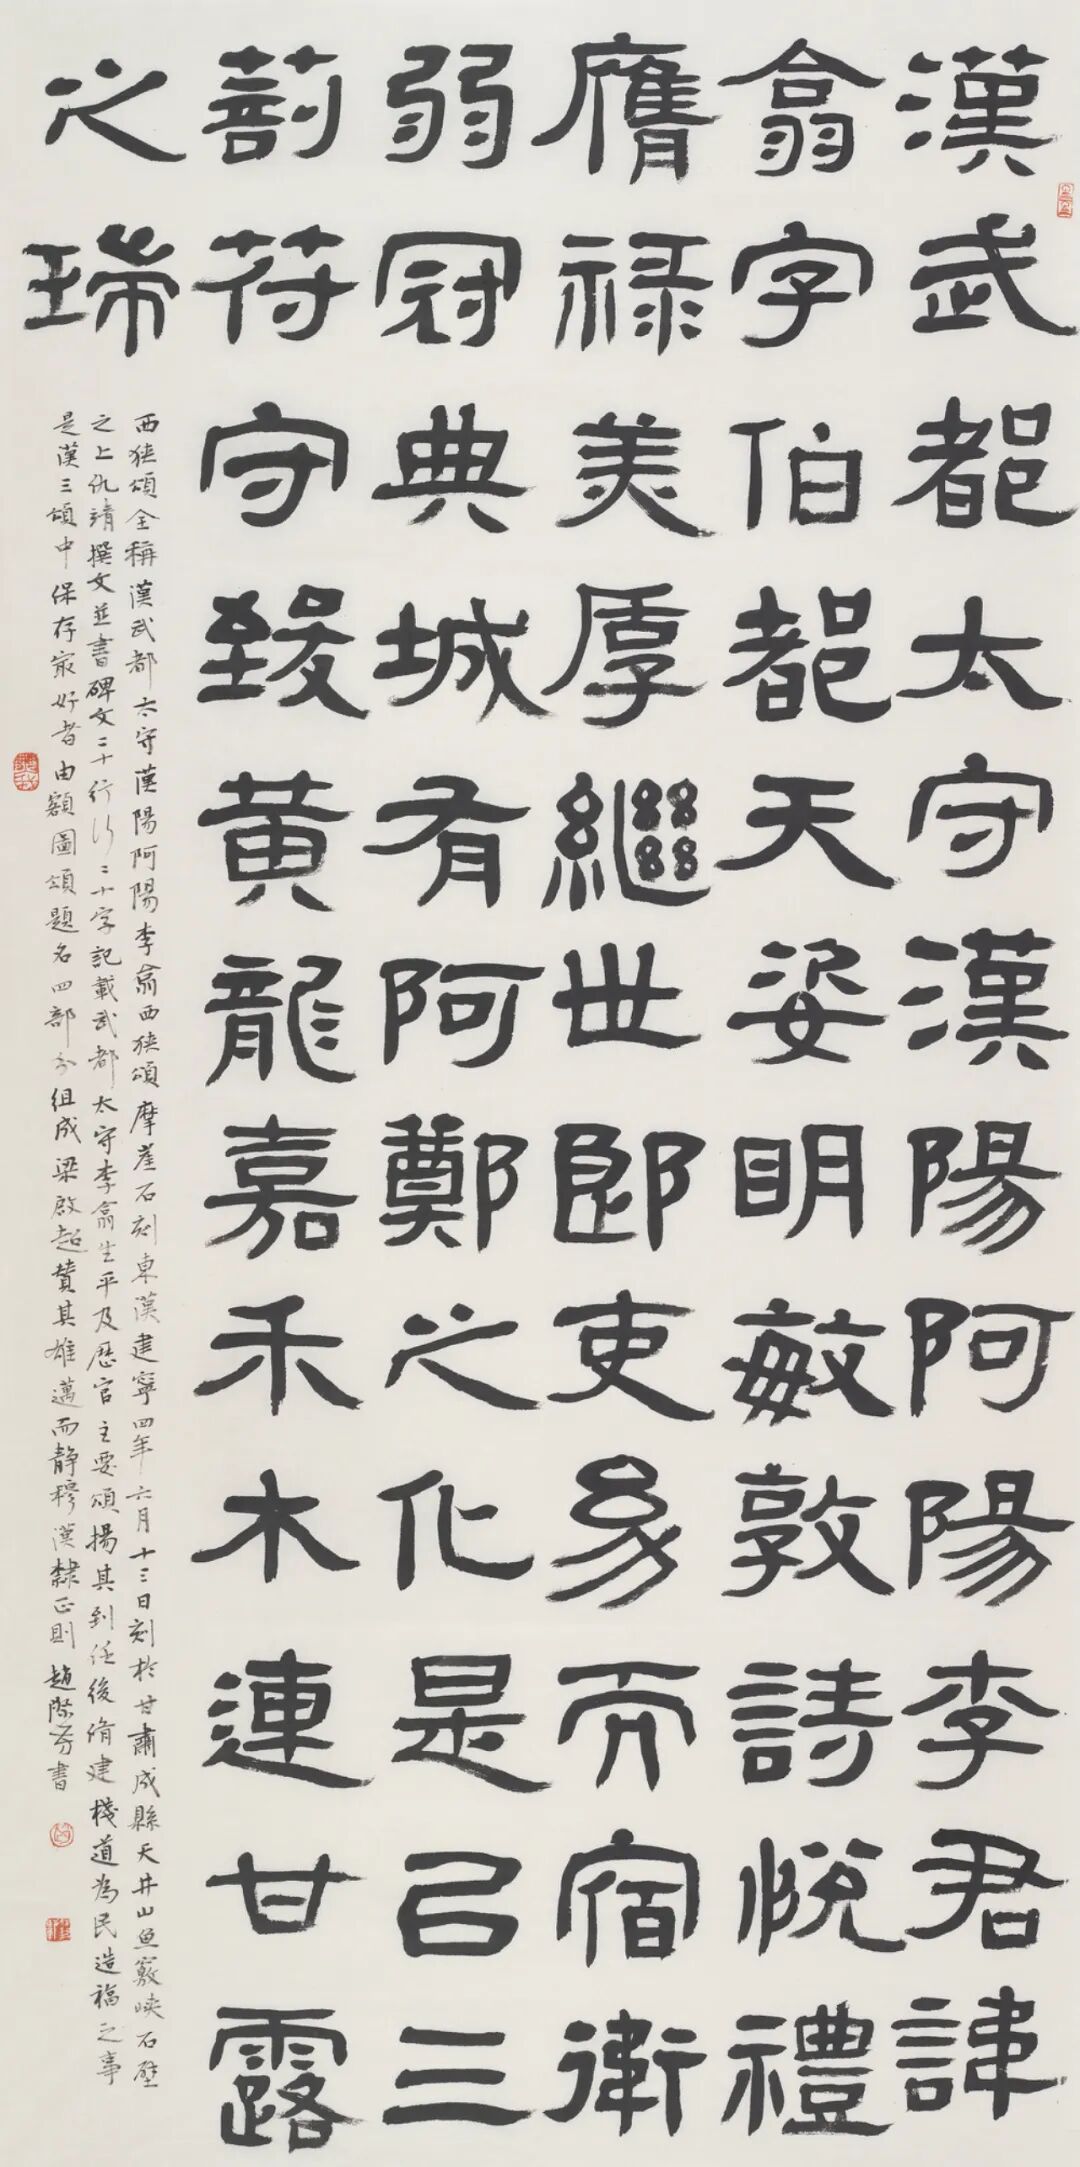 漢武都太守漢陽阿陽李君諱
翕字伯都天姿明敏敦詩悅禮
膺祿美厚繼世郎吏易而宿衛
弱冠典城有阿鄭之化是以三
剖符守致黃龍嘉禾木連甘露
之瑞
西狹頌全稱漢武都太守漢陽阿陽李翕西狹頌摩崖石刻東漢建寧四年六月十三日刻於甘肅成縣天井山魚竅峽石壁
之上仇靖撰文並書碑文二十行行二十字記載武都太守李翕生平及歷官主要頌揚其到任後脩建棧道為民造福之事
是漢三頌中保存最好者由額圖頌題名四部分組成梁啟超贊其雄邁而靜穆漢隸正則趙際芳書